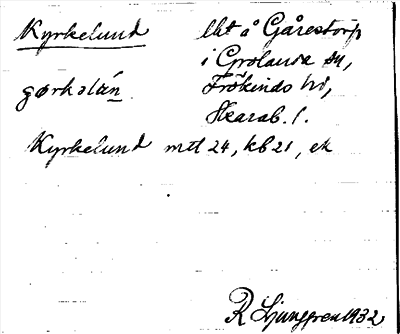 Kyrkelund lht å Gårestorp
i Grolanda sn,
gørkəlún Frökinds hd,
Skarab. l.
Kyrkelund mtl 24, kb 21, ek
R Ljunggren 1932